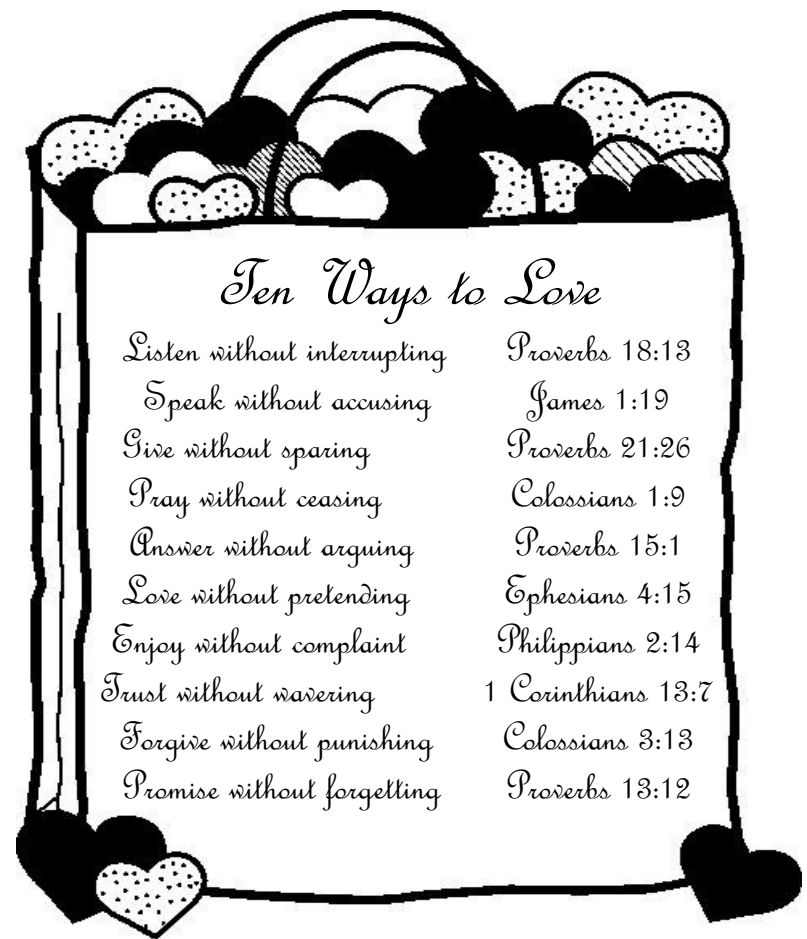 Ten Ways to Love
Listen without interrupting Proverbs 18:13
Speak without accusing James 1:19
Give without sparing Proverbs 21:26
Pray without ceasing Colossians 1:9
Answer without arguing Proverbs 15:1
Love without pretending Ephesians 4:15
Enjoy without complaint Philippians 2:14
Trust without wavering 1 Corinthians 13:7
Forgive without punishing Colossians 3:13
Promise without forgetting Proverbs 13:12